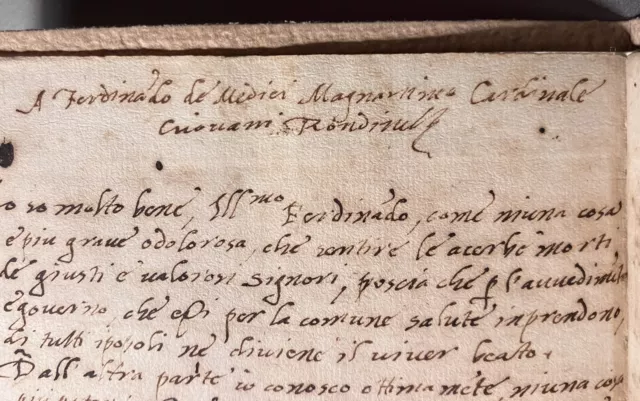 A Ferdinãdo de Medici Magnanimo Cardinale
Giovani Rondinelli
o so molto bene, Ill.mo Ferdinãdo, come niuna cosa
è piu grave o dolorosa, che sentire le acerbe morti
de giusti e valorosi Signori, poscia che p l'avvedimẽto
e governo, che essi per la comune salute inprendono,
ai tutti i popoli ne diviene il viver beato.
Dall altra parte io conosco ottimamẽte, niuna cosa